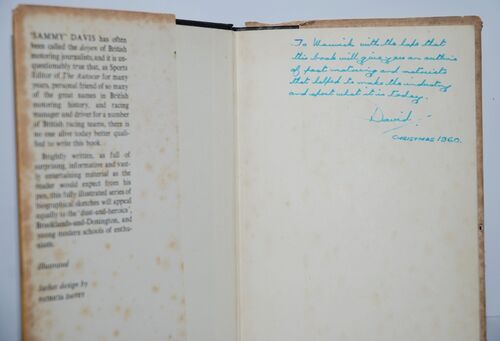 'SAMMY' DAVIS has often
been called the doyen of British
motoring journalists, and it is un-
questionably true that, as Sports
Editor of The Autocar for many
years, personal friend of so many
of the great names in British
motoring history, and racing
manager and driver for a number
of British racing teams, there is
no one alive today better quali-
fied to write this book.
Brightly written, as full of
surprising, informative and vast-
ly entertaining material as the
reader would expect from his
pen, this fully illustrated series of
biographical sketches will appeal
equally to the 'dust-and-heroics',
Brooklands-and-Donington, and
young modern schools of enthu-
siasts.
Illustrated
Jacket design by
To Warwick with the hope that
this book will give you an outline
of past motoring and motorists
that helped to make the industry
and sport what it is today.
David
CHRISTMAS 1960.